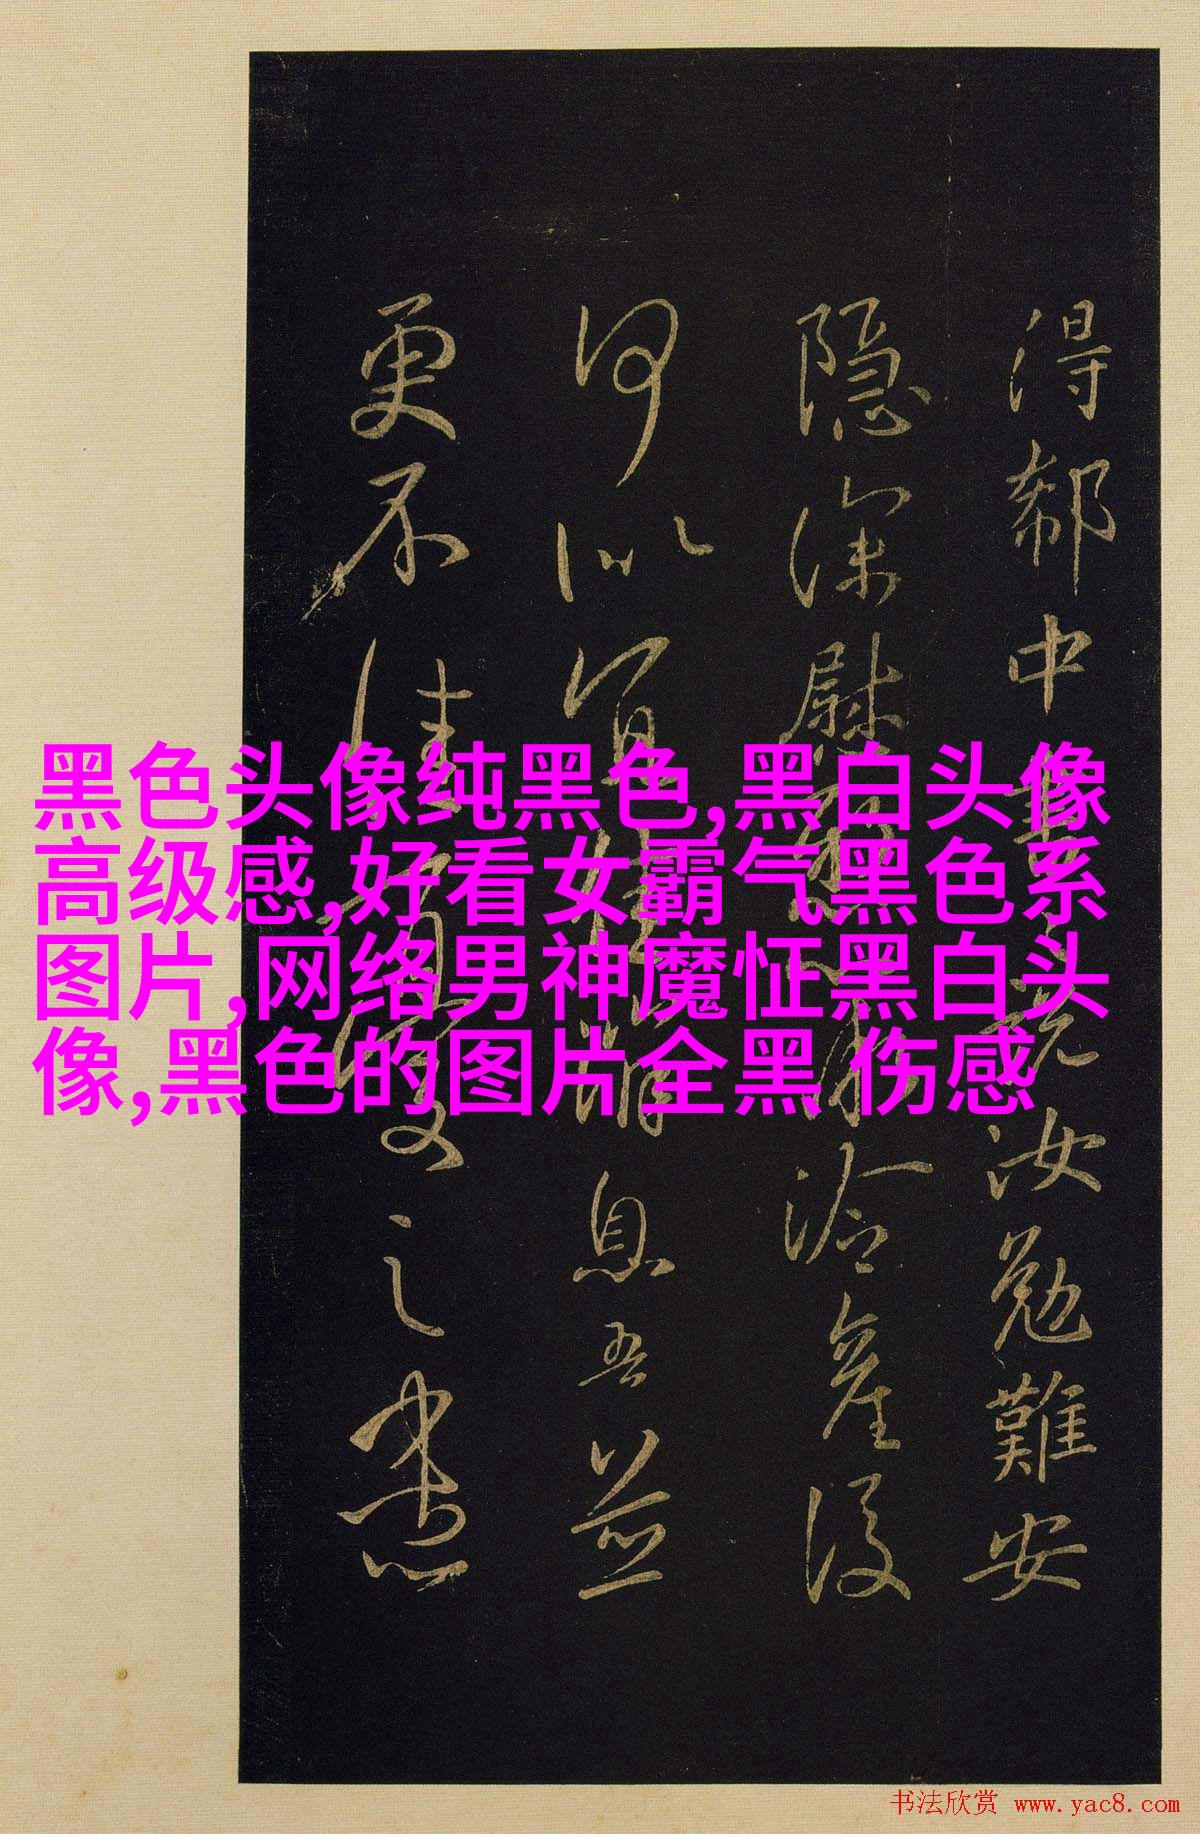 得郗中汝勉難安
隐深慰冷産後
何以息吾並
更不佳之
黑色头像纯黑色,黑白头像
高级感,好看女霸气黑色系
图片,网络男神魔怔黑白头
像,黑色的图片全黑 伤感
书法欣赏 www.yac8.com